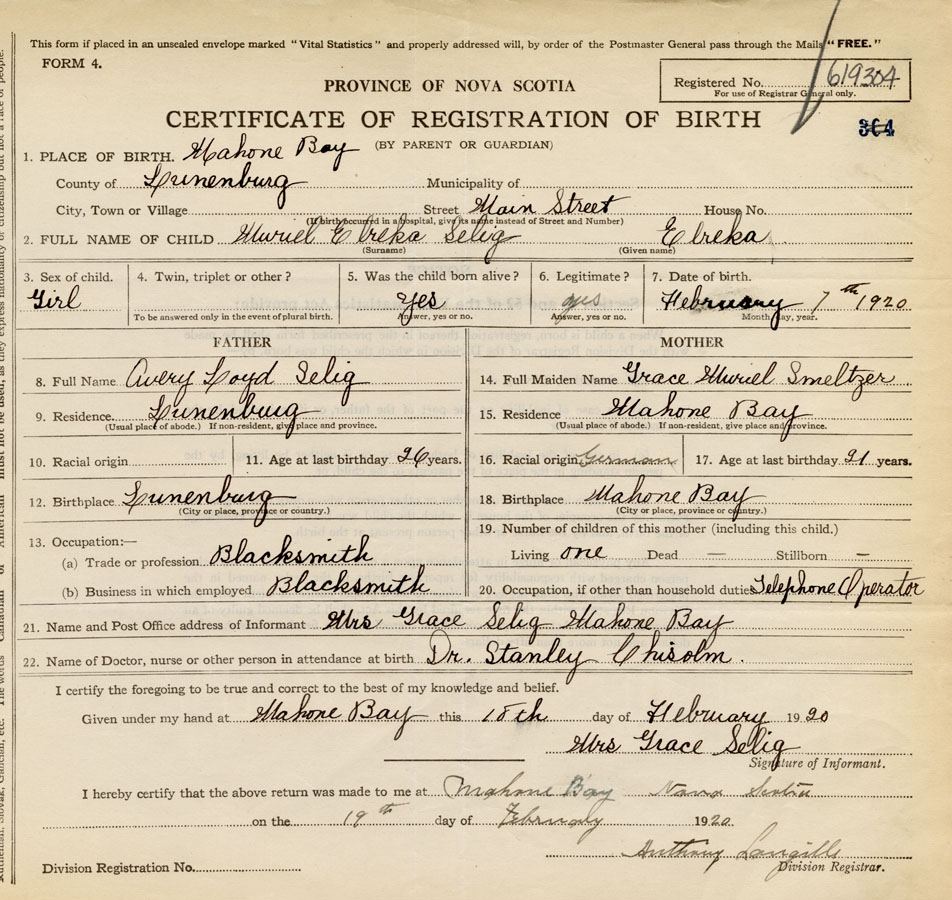 This form if placed in an unsealed envelope marked "Vital Statistics" and properly addressed will, by order of the Postmaster General pass through the Mails "FREE."
FORM 4.
PROVINCE OF NOVA SCOTIA
Registered No. 619304
For use of Registrar General only.
CERTIFICATE OF REGISTRATION OF BIRTH
364
(BY PARENT OR GUARDIAN)
1. PLACE OF BIRTH. Mahone Bay
County of Lunenburg Municipality of
City, Town or Village Street Main Street House No.
(If birth occurred in a hospital, give its name instead of Street and Number)
2. FULL NAME OF CHILD Muriel Elreka Selig Elreka
(Surname) (Given name)
3. Sex of child. 4. Twin, triplet or other? 5. Was the child born alive? 6. Legitimate? 7. Date of birth.
Girl yes yes February 7th 1920
To be answered only in the event of plural birth. Answer, yes or no. Answer, yes or no. Month day, year.
FATHER MOTHER
8. Full Name Avery Loyd Selig 14. Full Maiden Name Grace Muriel Smeltzer
9. Residence. Lunenburg 15. Residence Mahone Bay
(Usual place of abode.) If non-resident, give place and province. (Usual place of abode.) If non-resident, give place and province.
10. Racial origin 11. Age at last birthday 26 years. 16. Racial origin German 17. Age at last birthday 21 years.
12. Birthplace Lunenburg 18. Birthplace Mahone Bay
(City or place, province or country.) (City or place, province or country.)
13. Occupation:— 19. Number of children of this mother (including this child.)
(a) Trade or profession Blacksmith Living one Dead — Stillborn —
(b) Business in which employed Blacksmith 20. Occupation, if other than household duties Telephone Operator
21. Name and Post Office address of Informant Mrs Grace Selig Mahone Bay
22. Name of Doctor, nurse or other person in attendance at birth Dr. Stanley Chisolm.
I certify the foregoing to be true and correct to the best of my knowledge and belief.
Given under my hand at Mahone Bay this 18th day of February 1920
Mrs Grace Selig
Signature of Informant.
I hereby certify that the above return was made to me at Mahone Bay Nova Scotia
on the 19th day of February 1920.
Anthony Langille
Division Registration No. Division Registrar.